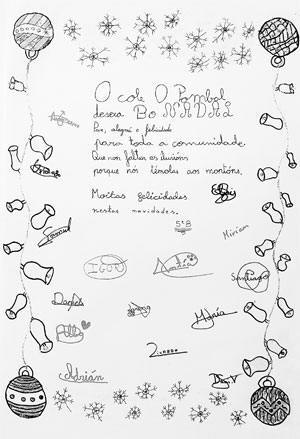 O cole O Pombal
desexa Bo NADAL
Paz, alegría e felicidade
para toda a comunidade.
Que non falten as ilusións
porque nós témolas aos montóns.
Moitas felicidades
nestas navidades.
5ºB
Miriam
IGOR
Santiago
Daniela
María
Adrián